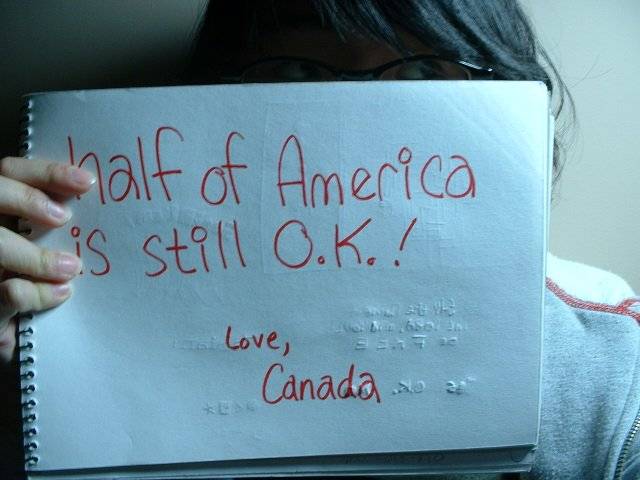 half of America
is still O.K.!
Love,
Canada